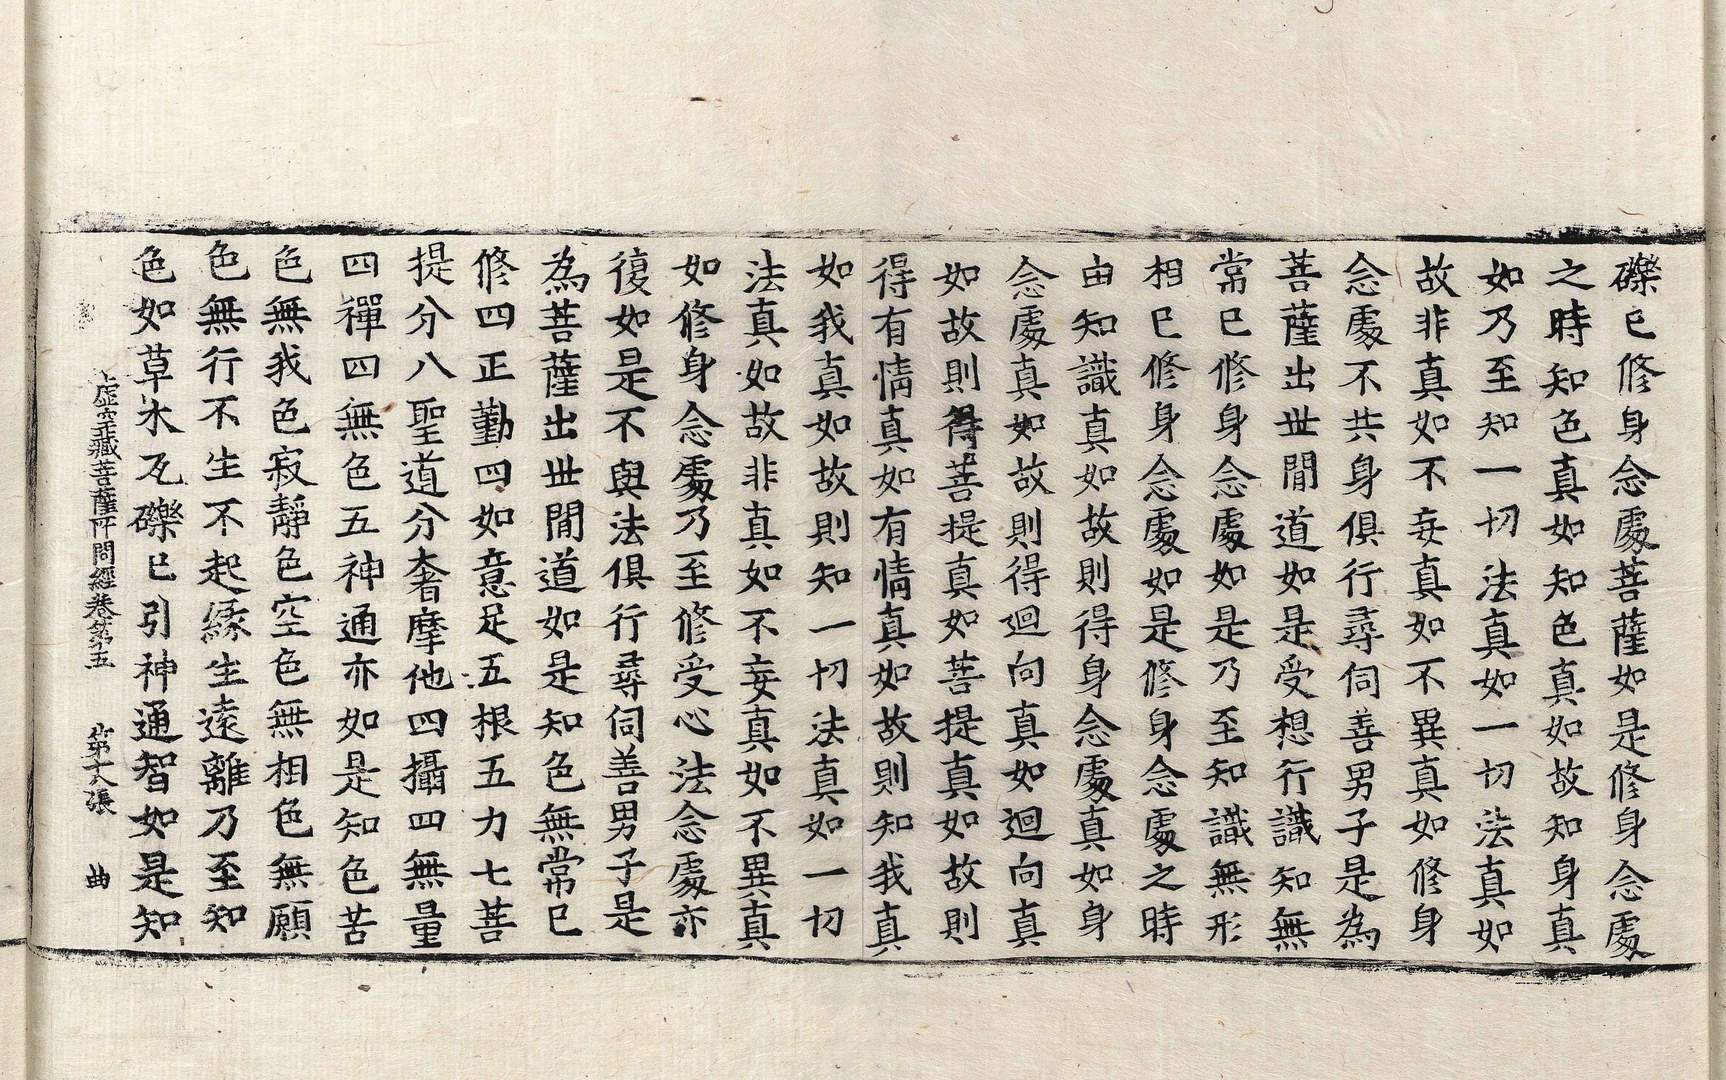 礫已修身念處菩薩如是修身念處
之時知色真如知色真如故知身真
如乃至知一切法真如一切法真如
故非真如不妄真如不異真如修身
念處不共身俱行尋伺善男子是為
菩薩出世間道如是受想行識知無
常已修身念處如是乃至知識無形
相已修身念處如是修身念處之時
由知識真如故則得身念處真如身
念處真如故則得迴向真如迴向真
如故則得菩提真如菩提真如故則
得有情真如有情真如故則知我真
如我真如故則知一切法真如一切
法真如故非真如不妄真如不異真
如修身念處乃至修受心法念處亦
復如是不與法俱行尋伺善男子是
為菩薩出世間道如是知色無常已
修四正勤四如意足五根五力七菩
提分八聖道分奢摩他四攝四無量
四禪四無色五神通亦如是知色苦
色無我色寂靜色空色無相色無願
色無行不生不起緣生遠離乃至知
色如草木瓦礫已引神通智如是知
虛空藏菩薩所問經卷第五 第十八張 曲